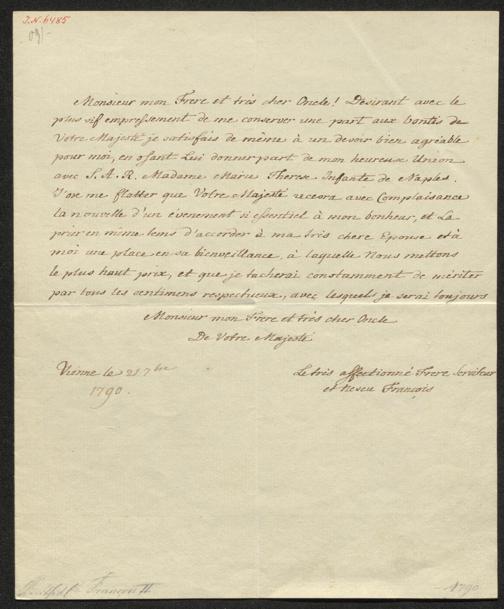 J.N. 6485
Monsieur mon Frere et très cher Oncle! Désirant avec le
plus vif empressement de me conserver une part aux bontés de
Votre Majesté je satisfais de même à un devoir bien agréable
pour moi, en osant Lui donner part de mon heureux Union
avec S. A. R. Madame Marie Therese Infante de Naples.
J'ose me flatter que Votre Majesté recevra avec Complaisance
la nouvelle d'un évenement si essentiel à mon bonheur, et La
prier en même tems d'accorder à ma très chere Epouse et à
moi une place en sa bienveillance, à laquelle Nous mettons
le plus haut prix, et que je tacherai constamment de mériter
par tous les sentimens respectueux, avec lesquels je serai toujours
Monsieur mon Frere et très cher Oncle
De Votre Majesté
Vienne le 21 7bre
1790.
Le très affectionné Frere Serviteur
et Neveu François
François II
1790